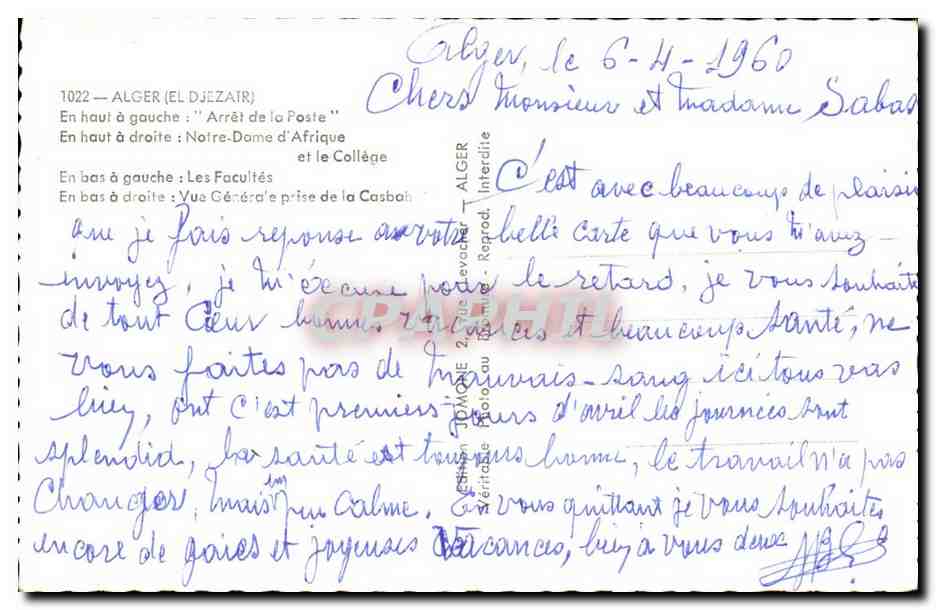 Alger, le 6-4-1960
Chers Monsieur et Madame Sabas
1022 — ALGER (EL DJEZAIR)
En haut à gauche : " Arrêt de la Poste "
En haut à droite : Notre-Dame d'Afrique
et le Collège
En bas à gauche : Les Facultés
En bas à droite : Vue Générale prise de la Casbah
Edition JOMONE 2, rue Levacher — ALGER
Véritable Photo au Bromure - Reprod. Interdite
C'est avec beaucoup de plaisir
que je fais reponse a votre belle carte que vous m'avez
envoyez, je m'éxcuse pour le retard, je vous souhaite
de tout Cœur bonnes vacances et beaucoup santé, ne
vous faites pas de mauvais-sang ici tous vas
bien, ont c'est premiers jours d'avril les journées sont
splendid, la santé est toujours bonne, le travail n'a pas
changer, mais un peu calme. En vous quittant je vous souhaites
encore de gaies et joyeuses Vacances, bien a vous deux
CPAPHIL